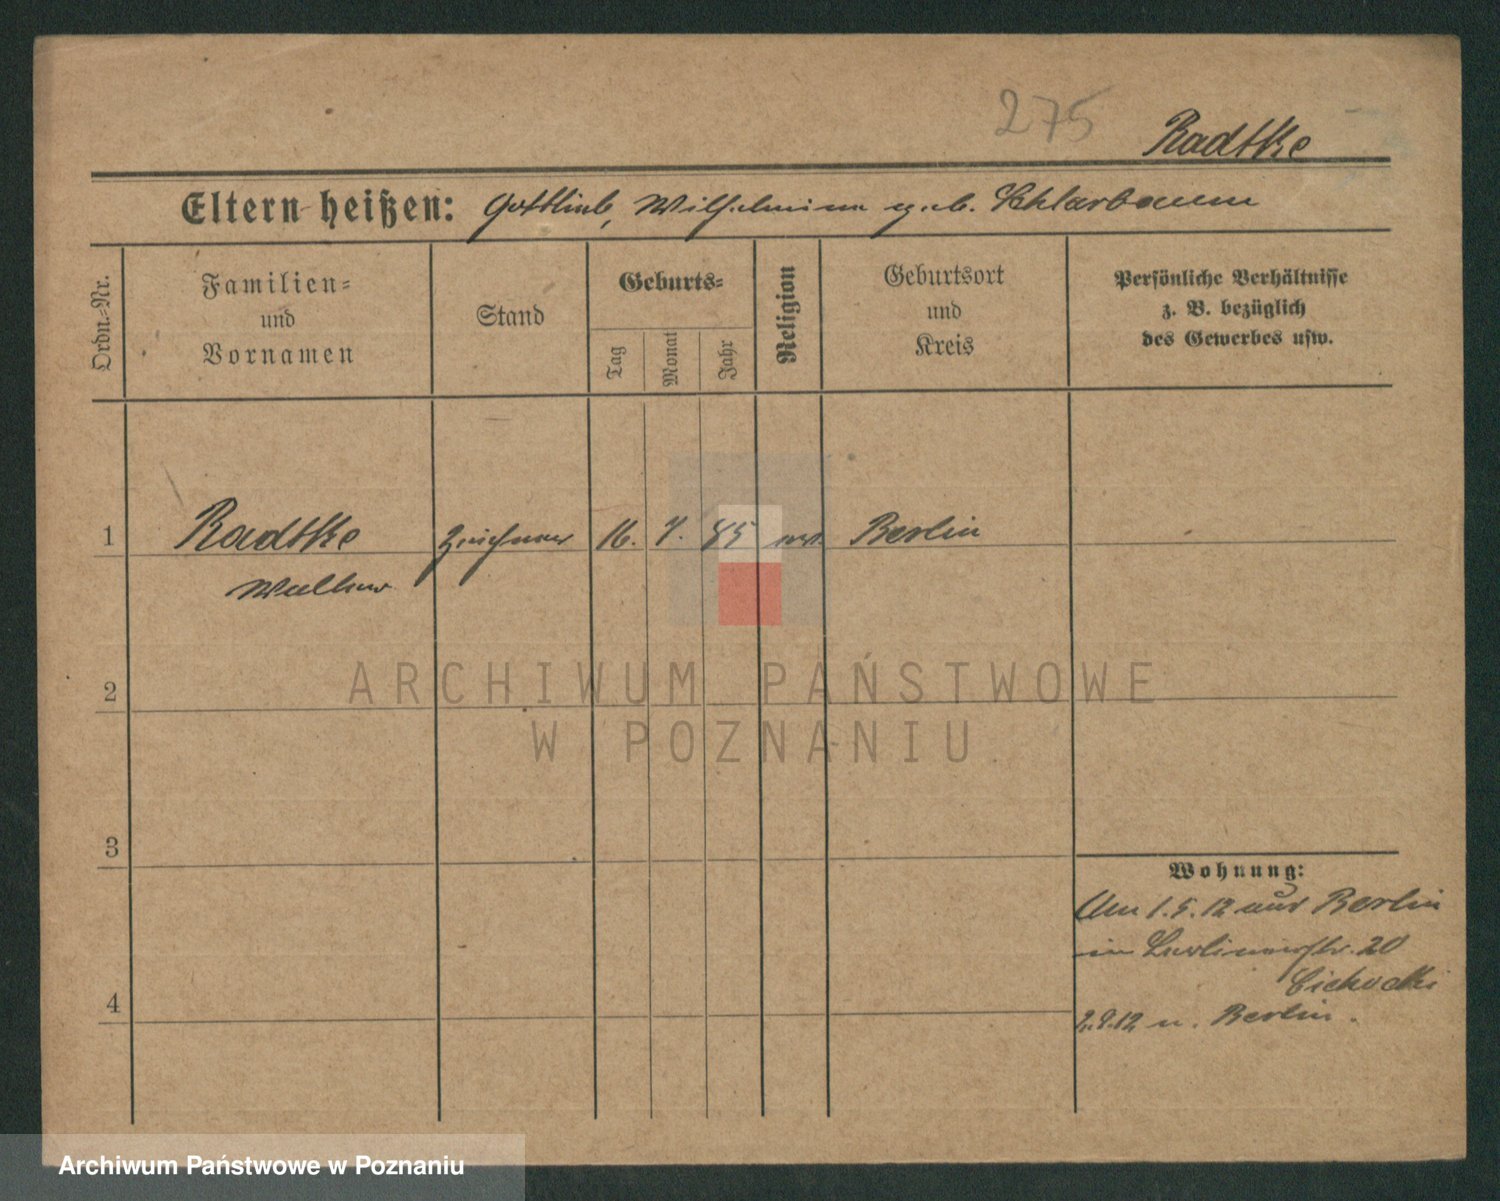 275
Radtke
Eltern heißen: Gottlieb, Wilhelmine geb. Schlarbaum
Ordn.-Nr.
Familien-
und
Vornamen
Stand
Geburts-
Tag
Monat
Jahr
Religion
Geburtsort
und
Kreis
Persönliche Verhältnisse
z. B. bezüglich
des Gewerbes usw.
1 Radtke Zeichner 16. 7. 85 Berlin
Walther
ARCHIWUM PAŃSTWOWE
2
W POZNANIU
3
Wohnung:
Am 1.5.12 aus Berlin
in 20
Cichocki
4
2.9.12 n. Berlin.
Archiwum Państwowe w Poznaniu